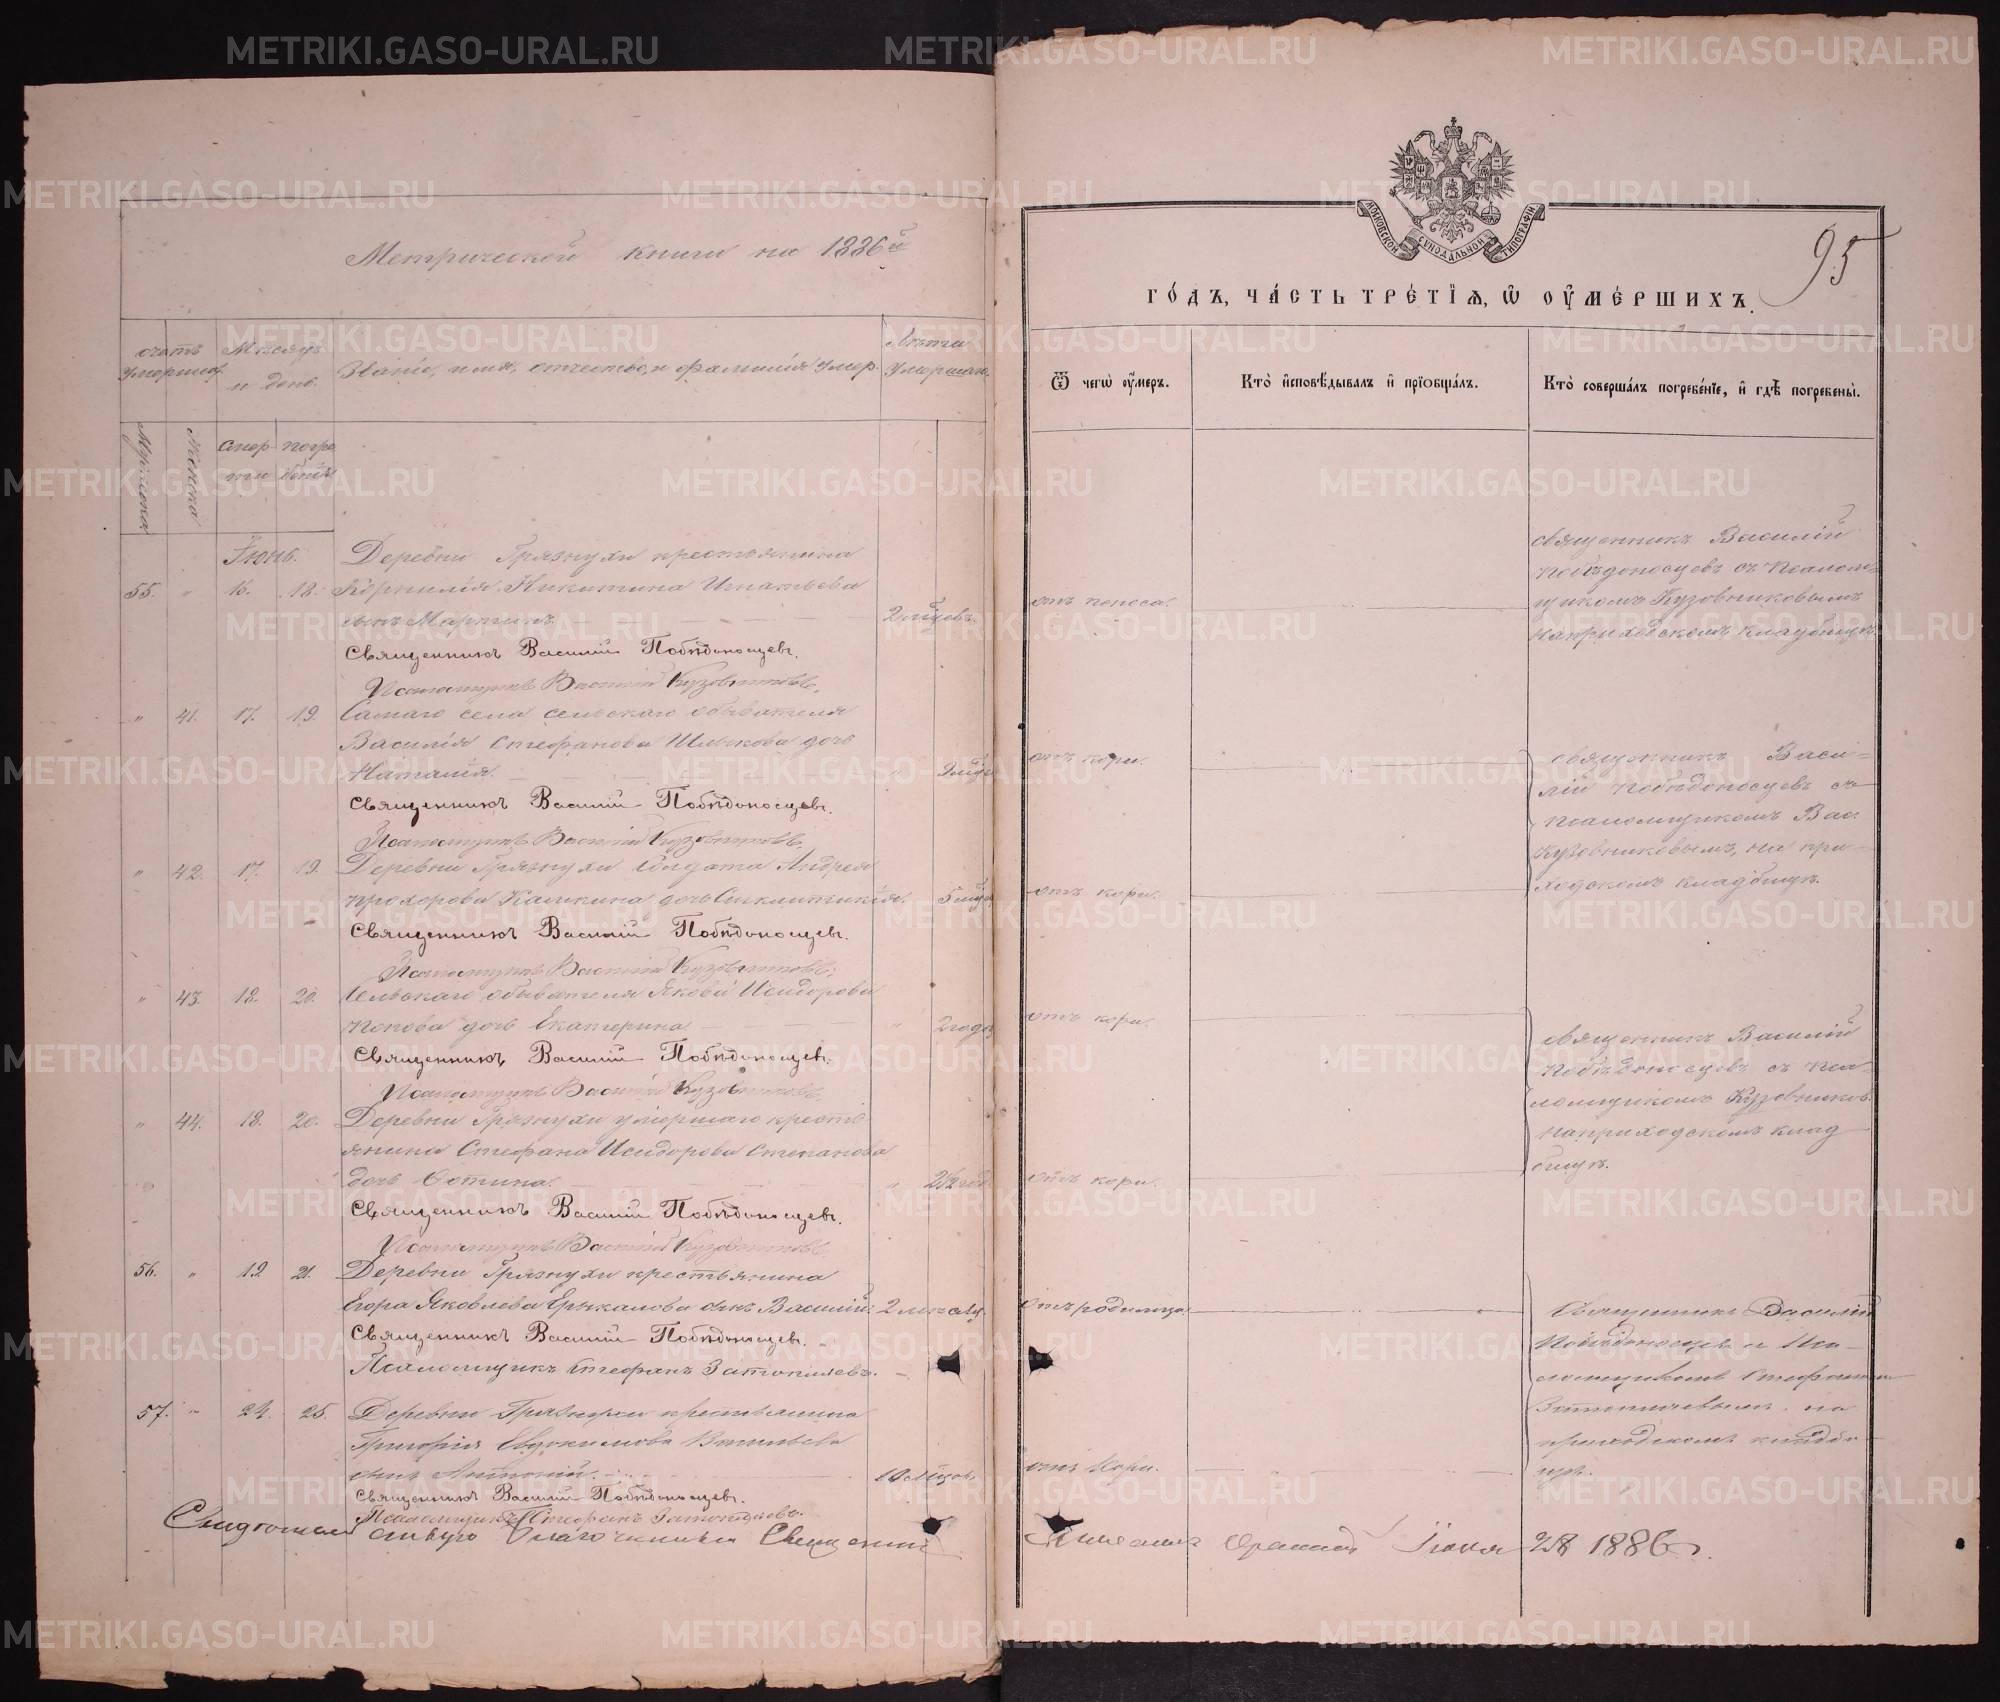 Метрической книги на 1886й
годъ, часть третія, ѿ оумершихъ.
95
МОСКОВСКОЙ СѴНОДАЛЬНОЙ ТИПОГРАФІИ
счетъ умершихъ
Мѣсяцъ и день.
Званіе, имя, отчество, и фамилія умер.
Лѣта умершаго.
Ѿ чегѡ оумеръ.
Кто исповѣдывалъ и пріобщалъ.
Кто совершалъ погребеніе, и гдѣ погребены.
Мужска
Женска
Смер-
ти
погре
бенія
Іюнь.
Деревни Грязнухи крестьянина
55. " 16. 18. Корнилія Никитина Игнатьева
сынъ Мартинъ. 2 мѣсцевъ.
отъ поноса.
священникъ Василій
Побѣдоносцевъ съ псалом-
щикомъ Кузовниковымъ
на приходскомъ кладбищѣ.
Священникъ Василій Побѣдоносцевъ.
Псаломщикъ Василій Кузовниковъ.
" 41. 17. 19. Самаго села сельскаго обывателя
Василія Стефанова дочь
Наталія. "
отъ кори.
Священникъ Василій Побѣдоносцевъ.
Псаломщикъ Василій Кузовниковъ.
священникъ Васи-
лій Побѣдоносцевъ съ
псаломщикомъ Вас.
Кузовниковымъ, на при-
ходскомъ кладбищѣ.
" 42. 17. 19. Деревни Грязнухи солдата Андрея
Прохорова Кашкина дочь Синклитикія.
отъ кори.
Священникъ Василій Побѣдоносцевъ.
Псаломщикъ Василій Кузовниковъ.
" 43. 18. 20. Сельскаго обывателя Якова Исидорова
Попова дочь Екатерина " 2 года
отъ кори.
Священникъ Василій Побѣдоносцевъ.
Псаломщикъ Василій Кузовниковъ.
священникъ Василій
Побѣдоносцевъ съ пса-
ломщикомъ Кузовников.
на приходскомъ клад
бищѣ.
" 44. 18. 20. Деревни Грязнухи умершаго кресть
янина Стефана Исидорова Степанова
дочь Фотина. " 2½ год.
отъ кори.
Священникъ Василій Побѣдоносцевъ.
Псаломщикъ Василій Кузовниковъ.
56. " 19. 21. Деревни Грязнухи крестьянина
Егора Яковлева Ерыкалова сынъ Василій. 2 мѣсяц.
отъ родимца.
Священникъ Василій Побѣдоносцевъ.
Псаломщикъ Стефанъ Затопляевъ.
Священникъ Василій
Побѣдоносцевъ и Пса-
ломщикомъ Стефаномъ
на
приходскомъ кладби-
щѣ.
57. " 24. 25. Деревни Грязнухи крестьянина
Григорія Евдокимова Васильева
сынъ Антоній.
отъ кори.
Священникъ Василій Побѣдоносцевъ.
Псаломщикъ Стефанъ Затопляевъ.
Благочинный Священникъ
Іюня 28 1886 г.
METRIKI.GASO-URAL.RU